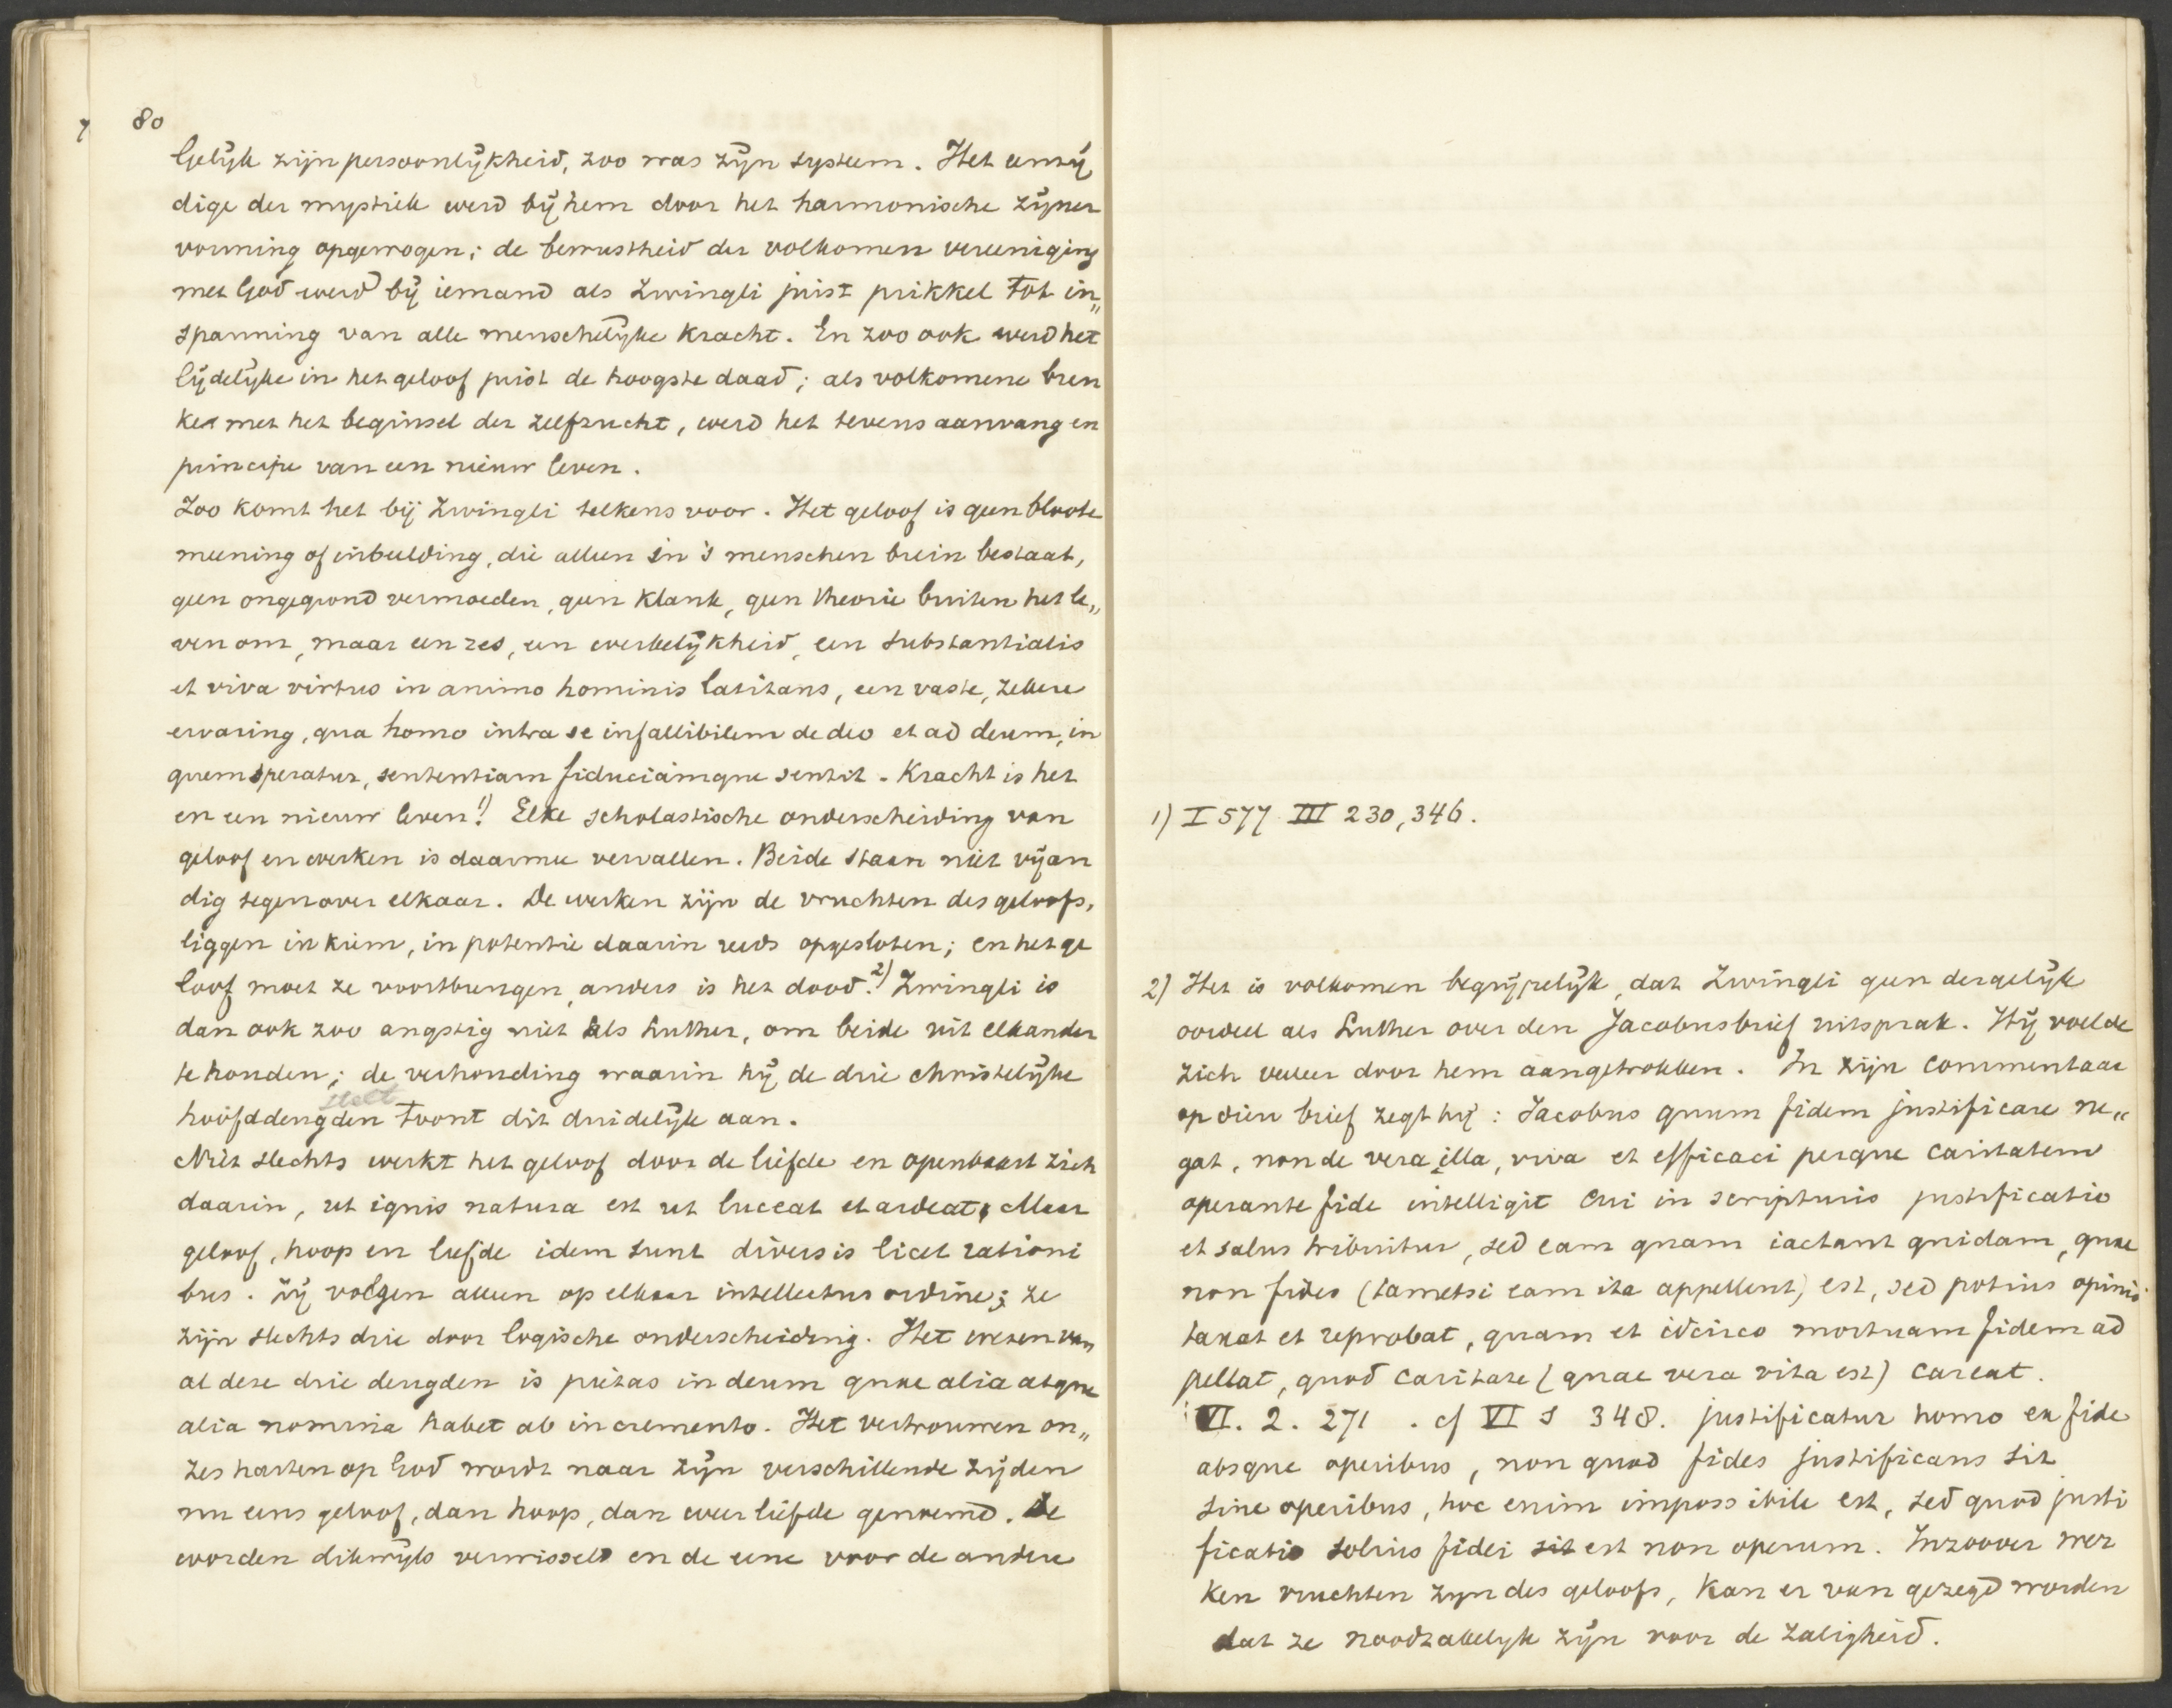 80
Gelijk zijn persoonlijkheid, zoo was zijn systeem. Het eenzij
dige der mystiek werd bij hem door het harmonische zijner
vorming opgewogen; de bewustheid der volkomen vereeniging
met God werd bij iemand als Zwingli juist prikkel tot in„
spanning van alle menschelijke kracht. En zoo ook werd het
lijdelijke in het geloof juist de hoogste daad; als volkomene breu
ke met het beginsel der zelfzucht, werd het tevens aanvang en
principe van een nieuw leven.
Zoo komt het bij Zwingli telkens voor. Het geloof is geen bloote
meening of inbeelding, die alleen in 's menschen brein bestaat,
geen ongegrond vermoeden, geen klank, geen theorie buiten het le„
ven om, maar een res, een werkelijkheid, een substantialis
et viva virtus in animo hominis latitans, een vaste, zekere
ervaring, qua homo intra se infallibilem de deo et ad deum, in
quem speratur, sententiam fiduciamque sentit. Kracht is het
en een nieuw leven! 1) Elke scholastische onderscheiding van
geloof en werken is daarmee vervallen. Beide staan niet vijan
dig tegenover elkaar. De werken zijn de vruchten des geloofs,
liggen in kiem, in potentie daarin reeds opgesloten; en het ge
loof moet ze voortbrengen, anders is het dood. 2) Zwingli is
dan ook zoo angstig niet als Luther, om beide uit elkander
te houden; de verhouding waarin hij de drie christelijke
stelt
hoofddeugden toont dit duidelijk aan.
Niet slechts werkt het geloof door de liefde en openbaart zich
daarin, ut ignis natura est ut luceat et ardeat. Maar
geloof, hoop en liefde idem sunt diversis licet rationi
bus. Zij volgen alleen op elkaar intellectus ordine; ze
zijn slechts drie door logische onderscheiding. Het wezen van
al deze drie deugden is pietas in deum quae alia atque
alia nomina habet ab incremento. Het vertrouwen on„
zes harten op God wordt naar zijn verschillende zijden
nu eens geloof, dan hoop, dan weer liefde genoemd. Ze
worden dikwijls verwisseld en de eene voor de andere
1) I 577 III 230, 346.
2) Het is volkomen begrijpelijk, dat Zwingli geen dergelijk
oordeel als Luther over den Jacobusbrief uitsprak. Hij voelde
zich veeleer door hem aangetrokken. In zijn commentaar
op dien brief zegt hij: Jacobus quum fidem justificare ne„
gat, non de vera illa, viva et efficaci perque caritatem
operante fide intelligit cui in scripturis justificatio
et salus tribuitur, sed eam quam iactant quidam, quae
non fides (tametsi eam ita appellent) est, sed potius opinio
taxat et reprobat, quam et idcirco mortuam fidem ad
pellat, quod caritate (quae vera vita est) careat.
VI. 2. 271 . cf VI 1 348. justificatur homo ex fide
absque operibus, non quod fides justificans sit
sine operibus, hoc enim impossibile est, sed quod justi
ficatio solius fidei sit est non operum. Inzoover wer
ken vruchten zijn des geloofs, kan er van gezegd worden
dat ze noodzakelijk zijn voor de zaligheid.